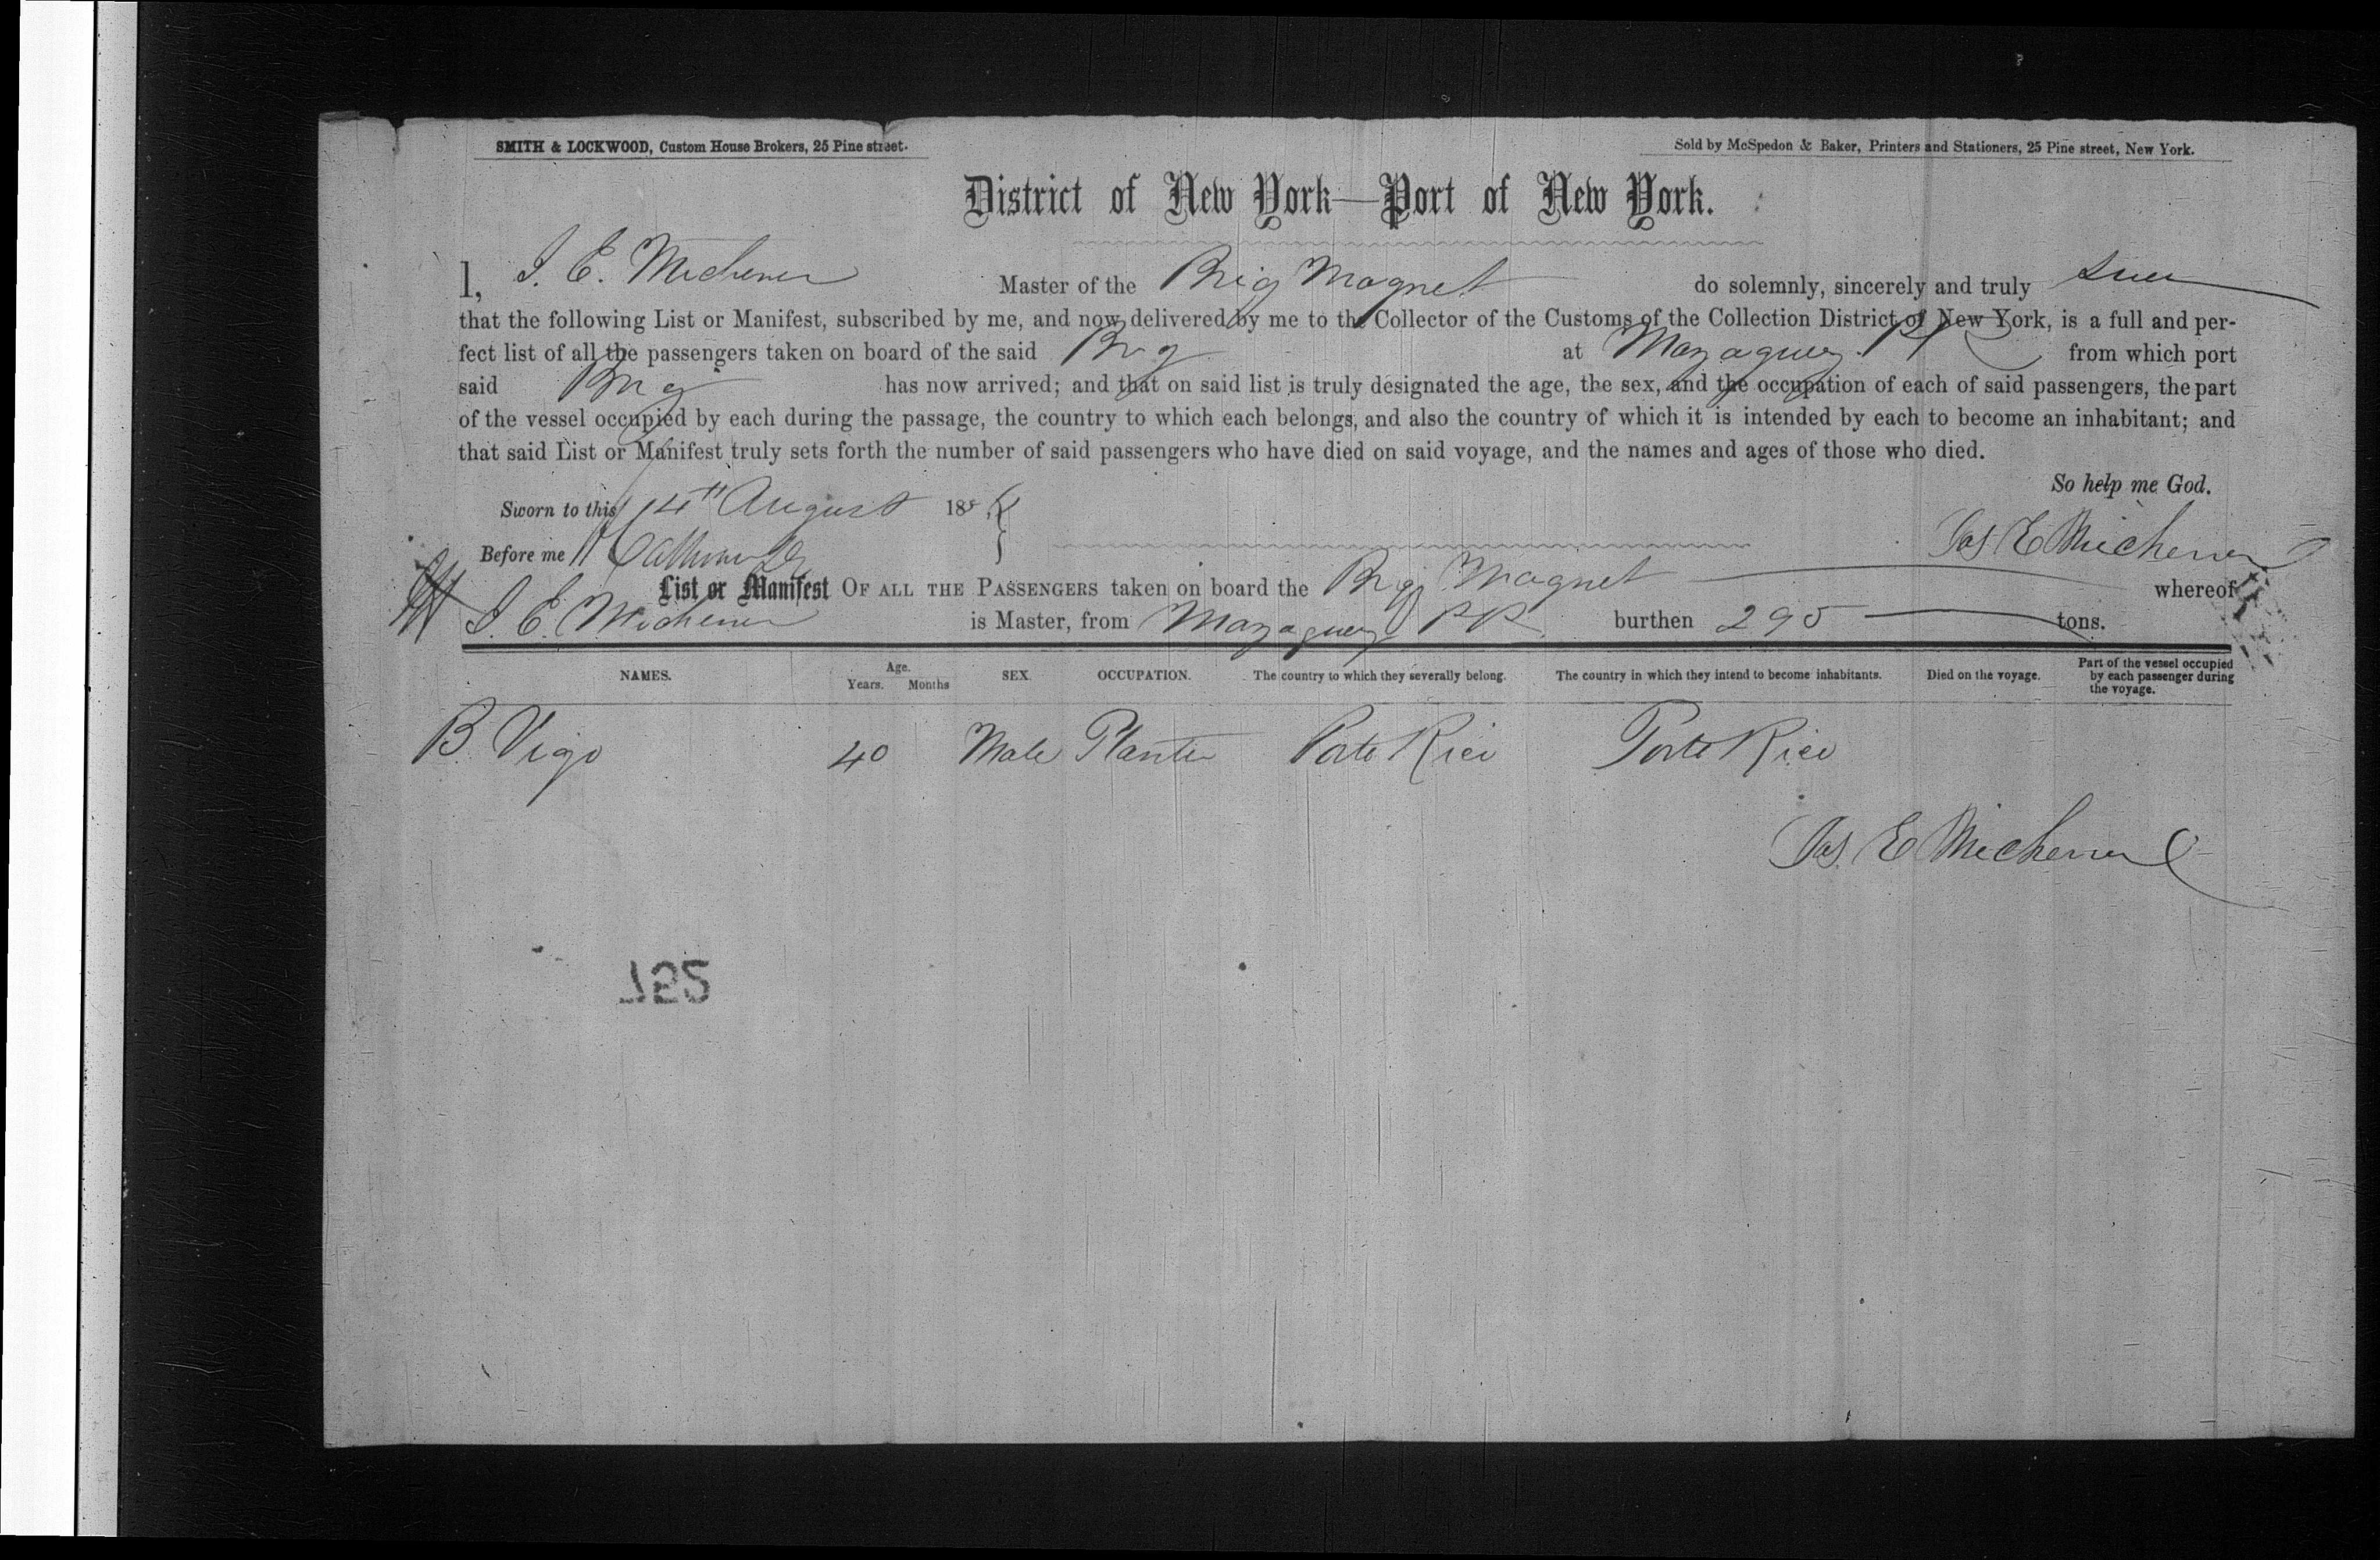 SMITH & LOCKWOOD, Custom House Brokers, 25 Pine street.
Sold by McSpedon & Baker, Printers and Stationers, 25 Pine street, New York.
District of New York—Port of New York.
I, J. E. Michener Master of the Brig Magnet do solemnly, sincerely and truly swear
that the following List or Manifest, subscribed by me, and now delivered by me to the Collector of the Customs of the Collection District of New York, is a full and per-
fect list of all the passengers taken on board of the said Brig at Mayaguez PR from which port
said Brig has now arrived; and that on said list is truly designated the age, the sex, and the occupation of each of said passengers, the part
of the vessel occupied by each during the passage, the country to which each belongs, and also the country of which it is intended by each to become an inhabitant; and
that said List or Manifest truly sets forth the number of said passengers who have died on said voyage, and the names and ages of those who died.
So help me God.
Sworn to this 14th August 18
Jas E Michener
Before me
List or Manifest OF ALL THE PASSENGERS taken on board the Brig Magnet whereof
J. E. Michener is Master, from Mayaguez PR burthen 295 tons.
NAMES. Age. Years. Months SEX. OCCUPATION. The country to which they severally belong. The country in which they intend to become inhabitants. Died on the voyage. Part of the vessel occupied by each passenger during the voyage.
B. Vigo 40 Male Planter Porto Rico Porto Rico
Jas. E Michener
125